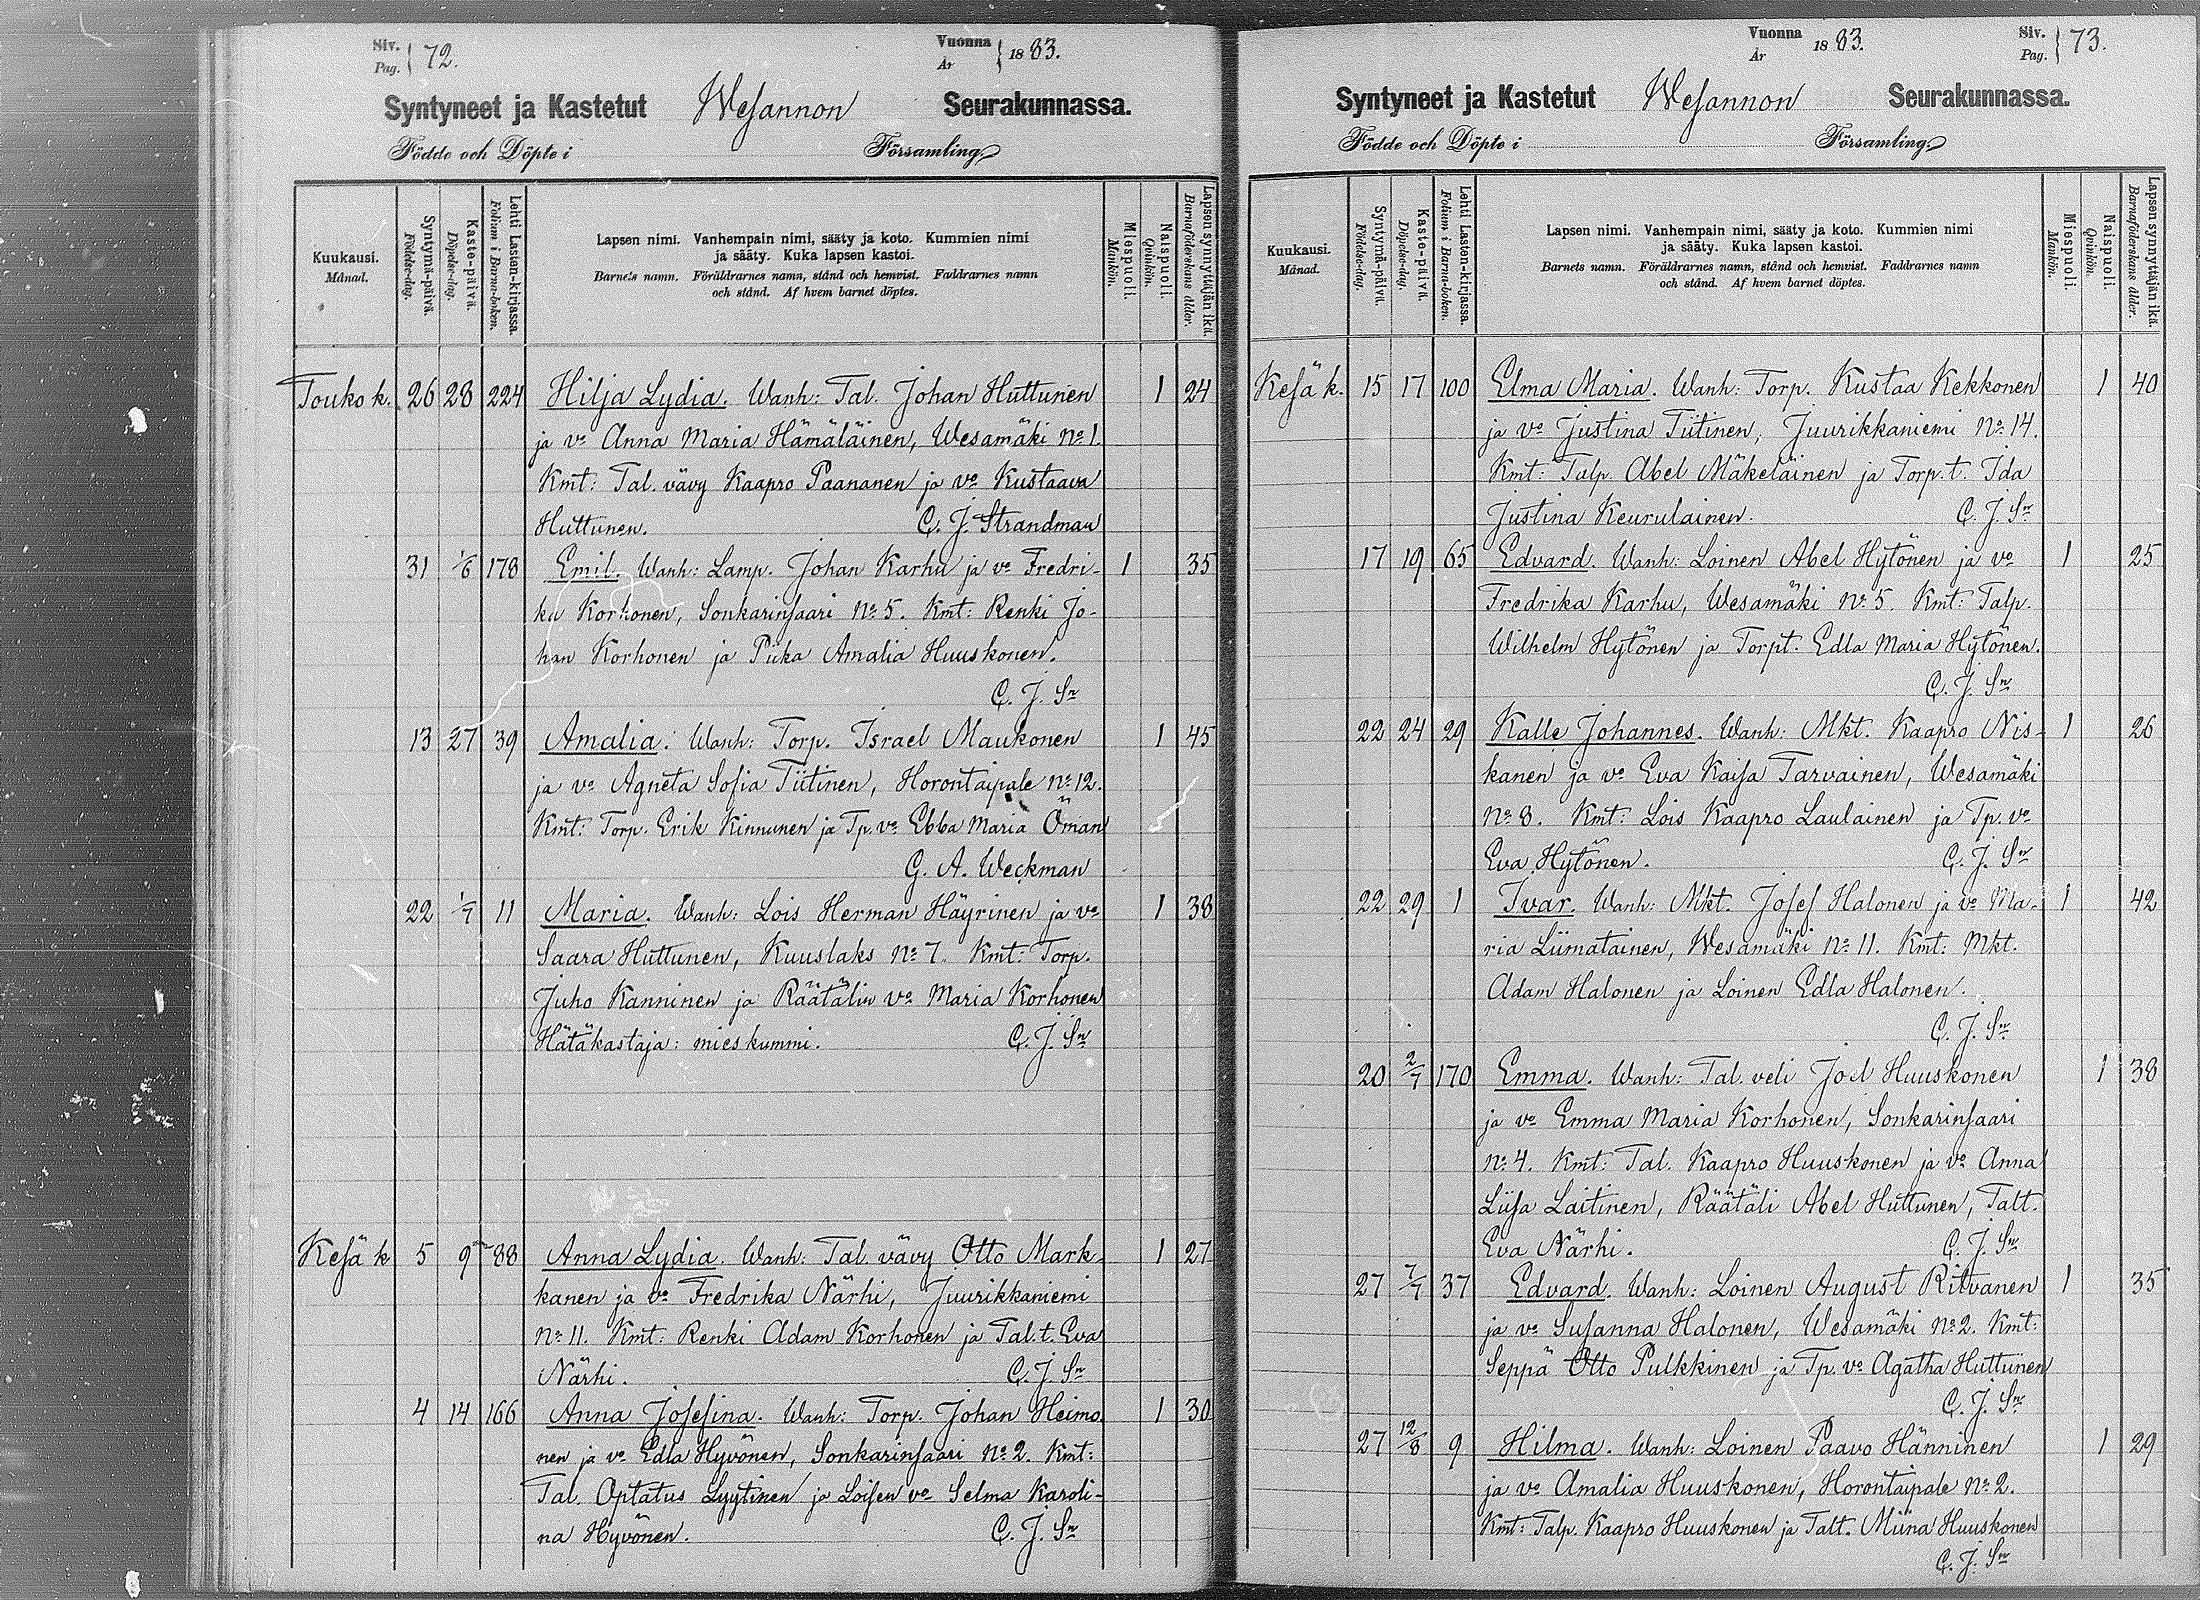 Siv. Pag. 72.
Vuonna År 1883.
Syntyneet ja Kastetut Wesannon Seurakunnassa.
Födde och Döpte i Församling.
Kuukausi. Månad.
Syntymä-päivä. Födelse-dag.
Kaste-päivä. Döpelse-dag.
Lehti Lasten-kirjassa. Folium i Barna-boken.
Lapsen nimi. Vanhempain nimi, sääty ja koto. Kummien nimi
ja sääty. Kuka lapsen kastoi.
Barnets namn. Föräldrarnes namn, stånd och hemvist. Faddrarnes namn
och stånd. Af hvem barnet döptes.
Miespuoli. Mankön.
Naispuoli. Qvinkön.
Lapsen synnyttäjän ikä. Barnaföderskans ålder.
Touko k. 26 28 224 Hilja Lydia. Wanh: Tal. Johan Huttunen 1 24
ja vo Anna Maria Hämäläinen, Wesamäki No 1.
Kmt: Tal. vävy Kaapro Paananen ja vo Kustaava
Huttunen. C. J. Strandman
31 1/6 178 Emil. Wanh: Lamp. Johan Karhu ja vo Fredri- 1 35
ka Korhonen, Sonkarinsaari No 5. Kmt: Renki Jo-
han Korhonen ja Piika Amalia Huuskonen.
C. J. Sn
13 27 39 Amalia. Wanh: Torp. Israel Maukonen 1 45
ja vo Agneta Sofia Tiitinen, Horontaipale No 12.
Kmt: Torp. Erik Kinnunen ja Tp. vo Ebba Maria Öman
G. A. Weckman
22 1/7 11 Maria. Wanh: Lois Herman Häyrinen ja vo 1 38
Saara Huttunen, Kuuslaks No 7. Kmt: Torp.
Juho Kanninen ja Räätälin vo Maria Korhonen
Hätäkastaja: mieskummi. C. J. Sn
Kesä k 5 9 88 Anna Lydia. Wanh: Tal. vävy Otto Mark- 1 27
kanen ja vo Fredrika Närhi, Juurikkaniemi
No 11. Kmt: Renki Adam Korhonen ja Tal.t. Eva
Närhi. C. J. Sn
4 14 166 Anna Josefina. Wanh: Torp. Johan Heimo 1 30
nen ja vo Edla Hyvönen, Sonkarinsaari No 2. Kmt:
Tal. Optatus Lyytinen ja Loisen vo Selma Karoli-
na Hyvönen. C. J. Sn
Vuonna År 1883.
Siv. Pag. 73.
Syntyneet ja Kastetut Wesannon Seurakunnassa.
Födde och Döpte i Församling.
Kuukausi. Månad.
Syntymä-päivä. Födelse-dag.
Kaste-päivä. Döpelse-dag.
Lehti Lasten-kirjassa. Folium i Barna-boken.
Lapsen nimi. Vanhempain nimi, sääty ja koto. Kummien nimi
ja sääty. Kuka lapsen kastoi.
Barnets namn. Föräldrarnes namn, stånd och hemvist. Faddrarnes namn
och stånd. Af hvem barnet döptes.
Miespuoli. Mankön.
Naispuoli. Qvinkön.
Lapsen synnyttäjän ikä. Barnaföderskans ålder.
Kesä k. 15 17 100 Elma Maria. Wanh: Torp. Kustaa Kekkonen 1 40
ja vo Justina Tiitinen, Juurikkaniemi No 14.
Kmt: Talp. Abel Mäkeläinen ja Torp. t. Ida
Justina Keurulainen C. J. Sn
17 19 65 Edvard. Wanh: Loinen Abel Hytönen ja vo 1 25
Fredrika Karhu, Wesamäki No 5. Kmt: Talp.
Wilhelm Hytönen ja Torpt. Edla Maria Hytönen.
C. J. Sn
22 24 29 Kalle Johannes. Wanh: Mkt. Kaapro Nis- 1 26
kanen ja vo Eva Kaisa Tarvainen, Wesamäki
No 8. Kmt: Lois Kaapro Laulainen ja Tp. vo
Eva Hytönen. C. J. Sn
22 29 1 Ivar. Wanh: Mkt. Josef Halonen ja vo Ma- 1 42
ria Liimatainen, Wesamäki No 11. Kmt: Mkt.
Adam Halonen ja Loinen Edla Halonen.
C. J. Sn
20 2/7 170 Emma. Wanh: Tal. veli Joel Huuskonen 1 38
ja vo Emma Maria Korhonen, Sonkarinsaari
No 4. Kmt: Tal. Kaapro Huuskonen ja vo Anna
Liisa Laitinen, Räätäli Abel Huttunen, Talt.
Eva Närhi. C. J. Sn
27 7/7 37 Edvard. Wanh: Loinen August Ritvanen 1 35
ja vo Susanna Halonen, Wesamäki No 2. Kmt:
Seppä Otto Pulkkinen ja Tp. vo Agatha Huttunen
C. J. Sn
27 12/8 9 Hilma. Wanh: Loinen Paavo Hänninen 1 29
ja vo Amalia Huuskonen, Horontaipale No 2.
Kmt: Talp. Kaapro Huuskonen ja Talt. Miina Huuskonen
C. J. Sn